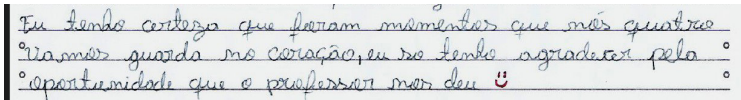 Eu tenho certeza que foram momentos que nós quatro
vamos guarda no coração, eu so tenho agradecer pela
oportunidade que o professor nos deu